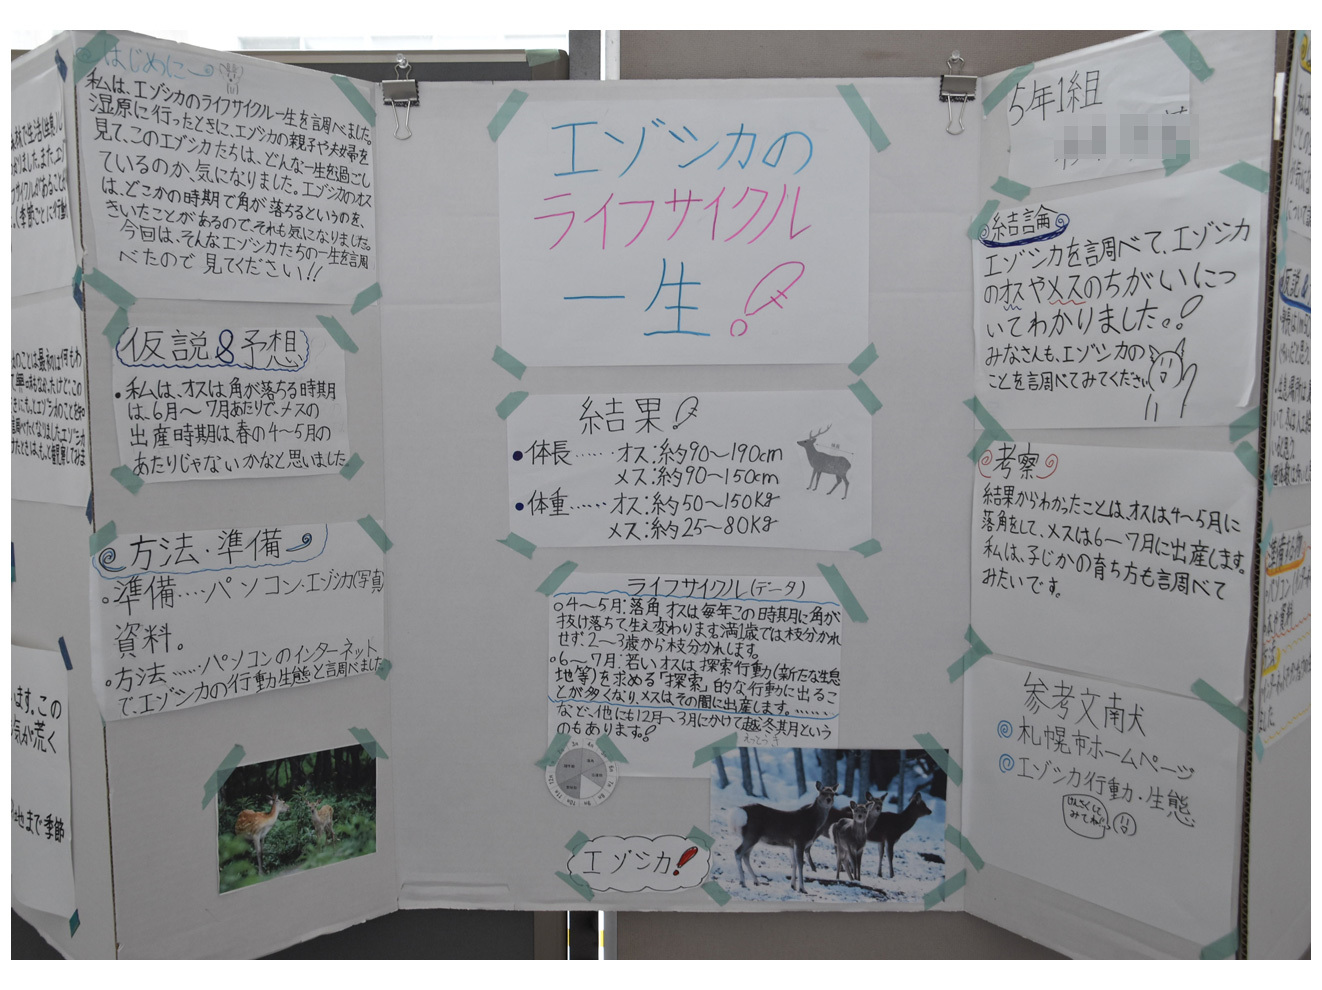 はじめに
私は、エゾシカのライフサイクル一生を調べました。
湿原に行ったときに、エゾシカの親子や夫婦を
見て、このエゾシカたちは、どんな一生を過ごし
ているのか、気になりました。エゾシカのオス
は、どこかの時期で角が落ちるというのを、
きいたことがあるので、それも気になりました。
今回は、そんなエゾシカたちの一生を調
べたので見てください!!
仮説&予想
・私は、オスは角が落ちる時期
は、6月〜7月あたりで、メスの
出産時期は春の4〜5月の
あたりじゃないかなと思いました。
方法・準備
。準備……パソコン・エゾシカ(写真)
資料。
。方法……パソコンのインターネット
で、エゾシカの行動生態と調べました
エゾシカの
ライフサイクル
一生!
結果!
●体長……オス:約90〜190cm
メス:約90〜150cm
●体重……オス:約50〜150kg
メス:約25〜80kg
ライフサイクル(データ)
○4〜5月:落角、オスは毎年この時期に角が
抜け落ちて生え変わります。満1歳では枝分かれ
せず、2〜3歳から枝分かれします。
○6〜7月:若いオスは、探索行動(新たな生息
地等)を求める「探索」的な行動に出るこ
とが多くなり、メスはその間に出産します。……
など、他にも12月〜3月にかけて越冬期という
のもあります。!
えっとうき
エゾシカ!
5年1組
結論
エゾシカを調べて、エゾシカ
のオスやメスのちがいにつ
いてわかりました。!
みなさんも、エゾシカの
ことを調べてみてください
考察
結果からわかったことは、オスは4〜5月に
落角をして、メスは6〜7月に出産します。
私は、子じかの育ち方も調べて
みたいです。
参考文献
札幌市ホームページ
エゾシカ行動・生態
けんさくして
みてね!!